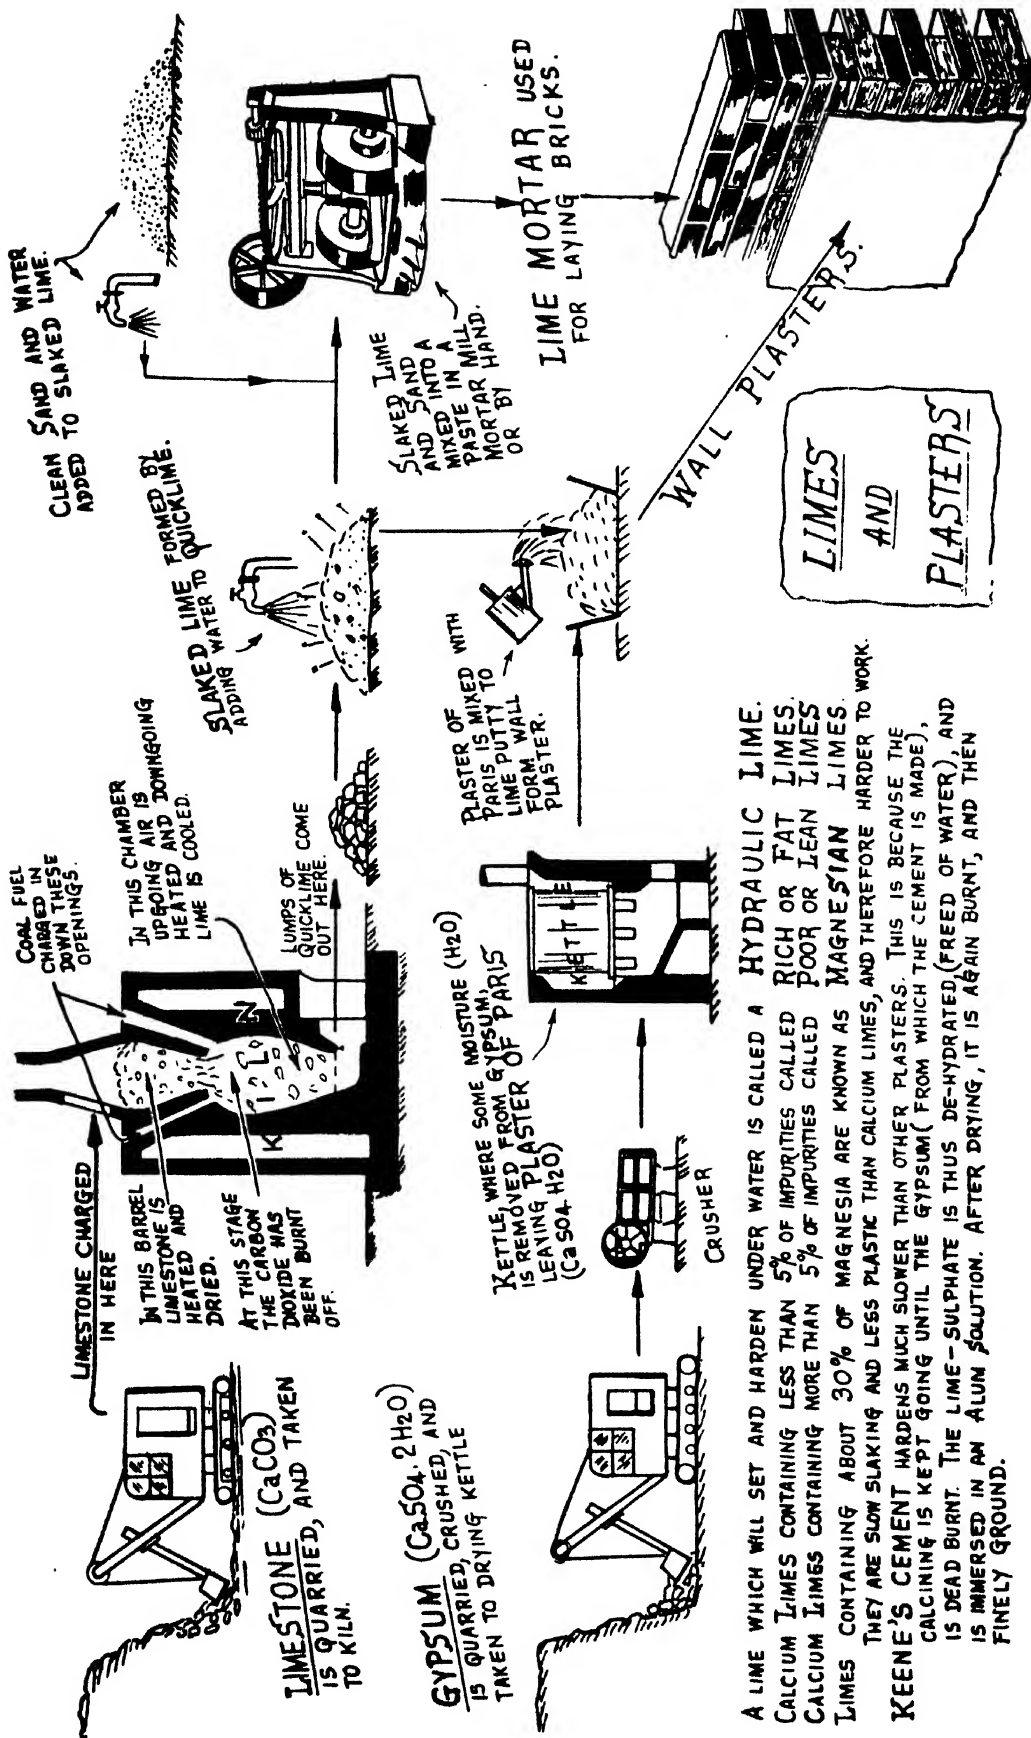 LIMESTONE (CaCO3)
IS QUARRIED, AND TAKEN
TO KILN.
LIMESTONE CHARGED
IN HERE
COAL FUEL
CHARGED IN
DOWN THESE
OPENINGS.
IN THIS BARREL
LIMESTONE IS
HEATED AND
DRIED.
AT THIS STAGE
THE CARBON
DIOXIDE HAS
BEEN BURNT
OFF.
KILN
IN THIS CHAMBER
UPGOING AIR IS
HEATED AND DOWNGOING
LIME IS COOLED.
LUMPS OF
QUICKLIME COME
OUT HERE.
SLAKED LIME FORMED BY
ADDING WATER TO QUICKLIME.
CLEAN SAND AND WATER
ADDED TO SLAKED LIME.
SLAKED LIME
AND SAND
MIXED INTO A
PASTE IN A
MORTAR MILL
OR BY HAND.
LIME MORTAR USED
FOR LAYING BRICKS.
GYPSUM (CaSO4. 2H2O)
IS QUARRIED, CRUSHED, AND
TAKEN TO DRYING KETTLE
CRUSHER
KETTLE, WHERE SOME MOISTURE (H2O)
IS REMOVED FROM GYPSUM,
LEAVING PLASTER OF PARIS
(CaSO4. H2O)
KETTLE
PLASTER OF
PARIS IS MIXED WITH
LIME PUTTY TO
FORM WALL
PLASTER.
WALL PLASTERS.
LIMES
AND
PLASTERS
A LIME WHICH WILL SET AND HARDEN UNDER WATER IS CALLED A HYDRAULIC LIME.
CALCIUM LIMES CONTAINING LESS THAN 5% OF IMPURITIES CALLED RICH OR FAT LIMES.
CALCIUM LIMES CONTAINING MORE THAN 5% OF IMPURITIES CALLED POOR OR LEAN LIMES
LIMES CONTAINING ABOUT 30% OF MAGNESIA ARE KNOWN AS MAGNESIAN LIMES.
THEY ARE SLOW SLAKING AND LESS PLASTIC THAN CALCIUM LIMES, AND THEREFORE HARDER TO WORK.
KEENE'S CEMENT HARDENS MUCH SLOWER THAN OTHER PLASTERS. THIS IS BECAUSE THE
CALCINING IS KEPT GOING UNTIL THE GYPSUM (FROM WHICH THE CEMENT IS MADE),
IS DEAD BURNT. THE LIME-SULPHATE IS THUS DE-HYDRATED (FREED OF WATER), AND
IS IMMERSED IN AN ALUM SOLUTION. AFTER DRYING, IT IS AGAIN BURNT, AND THEN
FINELY GROUND.